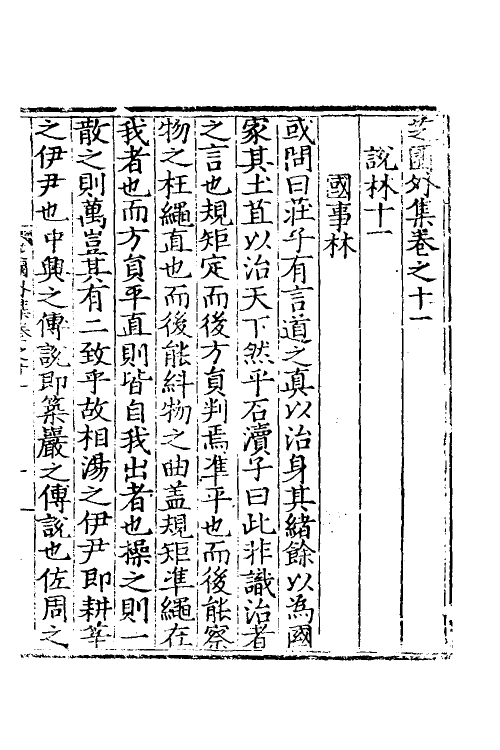 芝園外集卷之十一
說林十一
國事林
或問曰莊子有言道之真以治身其緒餘以為國
家其土苴以治天下然乎石瀆子曰此非識治者
之言也規矩定而後方貟判焉準平也而後能察
物之枉繩直也而後能糾物之曲盖規矩準繩在
我者也而方貟平直則皆自我出者也操之則一
散之則萬豈其有二致乎故相湯之伊尹即耕莘
之伊尹也中興之傅說即築巖之傅說也佐周之